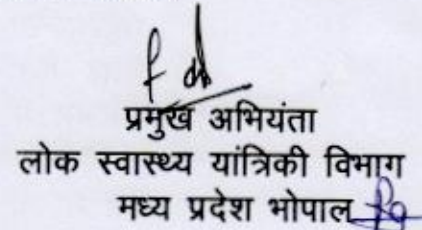 प्रमुख अभियंता
लोक स्वास्थ्य यांत्रिकी विभाग
मध्य प्रदेश भोपाल